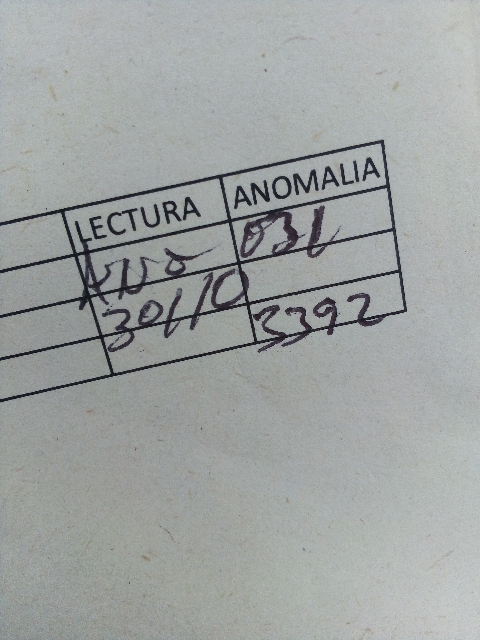 LECTURA ANOMALIA
031
30/10
3392